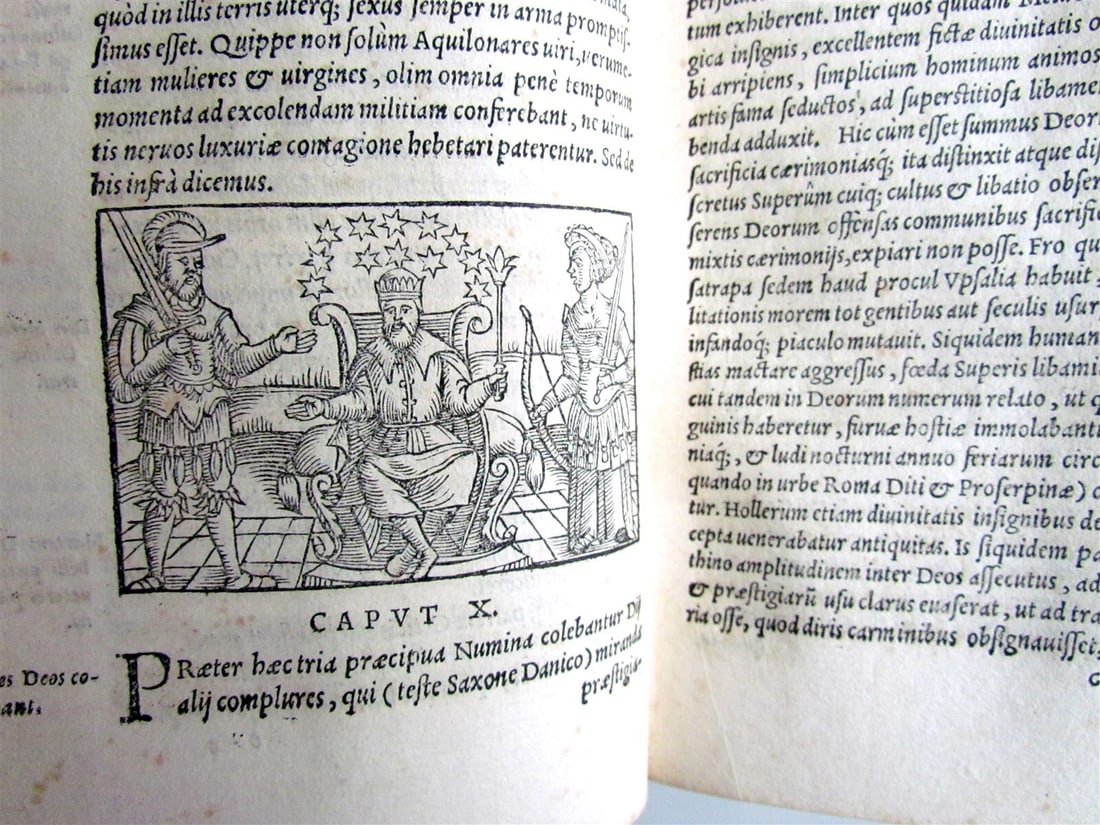 quòd in illis terris uterq; sexus semper in arma promptis-
simus esset. Quippe non solùm Aquilonares uiri, uerume-
tiam mulieres & uirgines, olim omnia penè temporum
momenta ad excolendam militiam conferebant, ne uirtu-
tis neruos luxuriæ contagione hebetari paterentur. Sed de
his infrà dicemus.
CAPVT X.
es Deos co-
ant.
PRæter hæc tria præcipua Numina colebantur Dij
alij complures, qui (teste Saxone Danico) miranda
præstigia-
tum exhiberent. Inter quos quidam
gica insignis, excellentem fictæ diuinitatis
bi arripiens, simplicium hominum animos
artis fama seductos, ad superstitiosa libame
benda adduxit. Hic cùm esset summus Deor
sacrificia cærimoniasq́; ita distinxit atque dis
scretus Superûm cuiq; cultus & libatio obser
serens Deorum offensas communibus sacrifi
mixtis cærimonijs, expiari non posse. Fro qu
satrapa sedem haud procul Vpsalia habuit,
litationis morem tot gentibus aut seculis usur
infandoq́; piaculo mutauit. Siquidem human
stias mactare aggressus, fœda Superis libami
cui tandem in Deorum numerum relato, ut q
guinis haberetur, furuæ hostiæ immolabant
niaq́;, & ludi nocturni annuo feriarum circ
quando in urbe Roma Diti & Proserpinæ) c
tur. Hollerum etiam diuinitatis insignibus de
cepta uenerabatur antiquitas. Is siquidem pa
thino amplitudinem inter Deos assecutus, ad
& præstigiarũ usu clarus euaserat, ut ad tra
ria osse, quod diris carminibus obsignauisset,